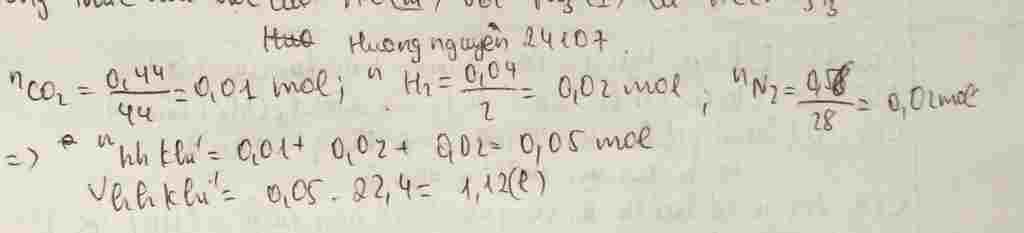 Hương nguyễn 24107
nCO2 = 0,44/44 = 0,01 mol; nH2 = 0,04/2 = 0,02 mol; nN2 = 0,56/28 = 0,02 mol
=> nhh khí = 0,01 + 0,02 + 0,02 = 0,05 mol
Vhh khí = 0,05 . 22,4 = 1,12 (l)